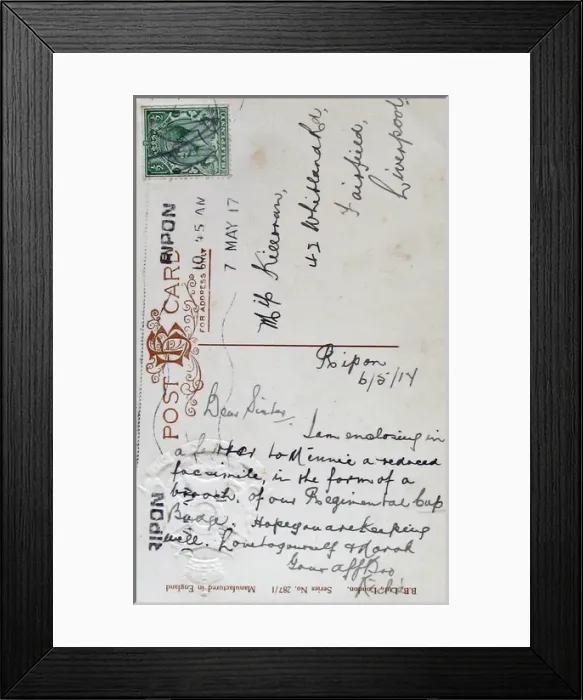 POST CARD
FOR ADDRESS ONLY
RIPON
10 45 AM
7 MAY 17
½ ½
42 Whitland Rd,
Fairfield,
Liverpool
Ripon
6/5/17
Dear Sister,
I am enclosing in
a letter to Minnie a reduced
facsimile, in the form of a
brooch, of our Regimental Cap
Badge. Hope you are keeping
well. Love to yourself & Norah
Your aff Bro
RIPON
B.B. London. Series No. 287/1 Manufactured in England